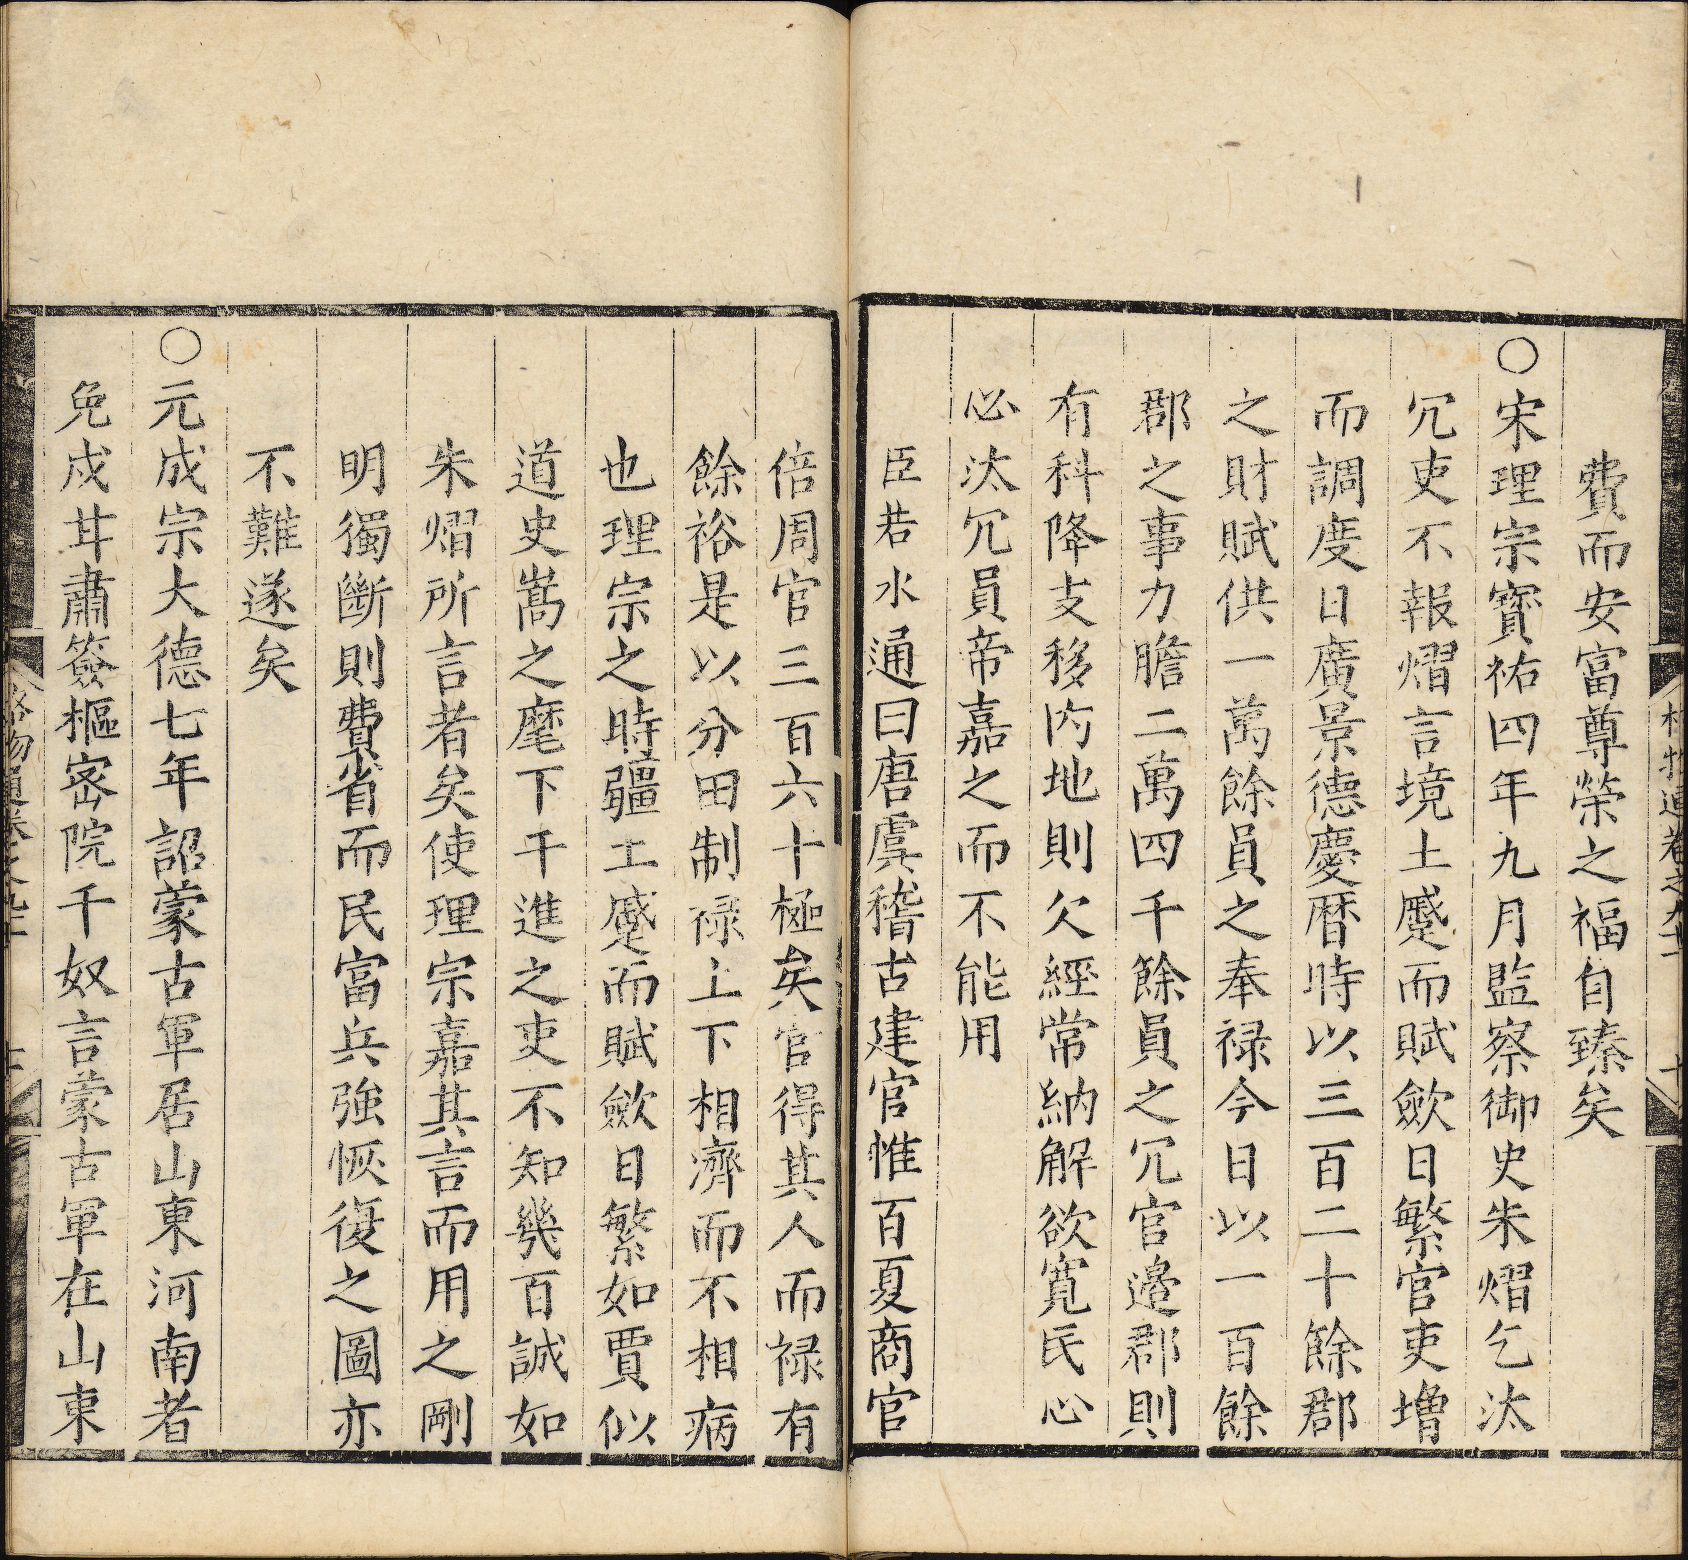 費而安富尊榮之福自臻矣
○宋理宗寳祐四年九月監察御史朱熠乞汰
冗吏不報熠言境土蹙而賦歛日繁官吏增
而調度日廣景德慶暦時以三百二十餘郡
之財賦供一萬餘員之奉禄今日以一百餘
郡之事力贍二萬四千餘員之冗官邉郡則
有科降支移内地則欠經常納解欲寛民心
必汰冗員帝嘉之而不能用
臣若水通曰唐虞稽古建官惟百夏商官
倍周官三百六十極矣官得其人而禄有
餘裕是以分田制禄上下相濟而不相病
也理宗之時疆土蹙而賦歛日繁如賈似
道史嵩之麾下干進之吏不知幾百誠如
朱熠所言者矣使理宗嘉其言而用之剛
明獨斷則費省而民富兵強恢復之圖亦
不難遂矣
○元成宗大德七年詔蒙古軍居山東河南者
免戍甘肅簽樞宻院千奴言蒙古軍在山東